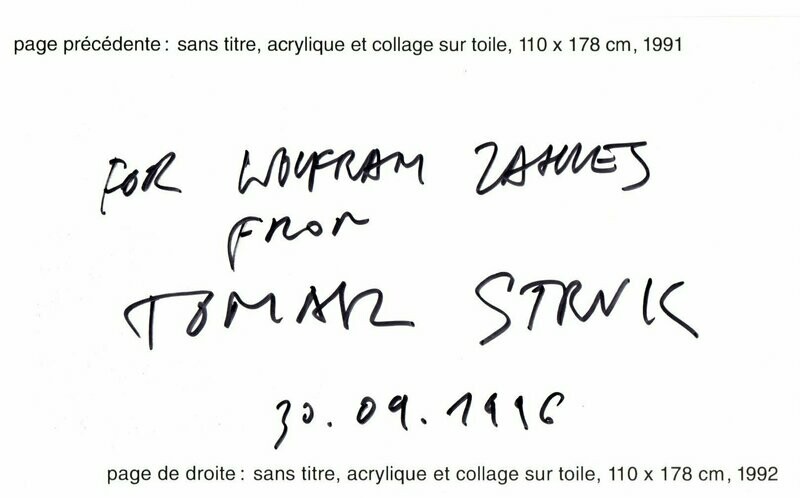 page précédente : sans titre, acrylique et collage sur toile, 110 x 178 cm, 1991
FOR WOLFRAM ZAHNES
FROM
TOMAZ STRNK
30.09.1996
page de droite : sans titre, acrylique et collage sur toile, 110 x 178 cm, 1992